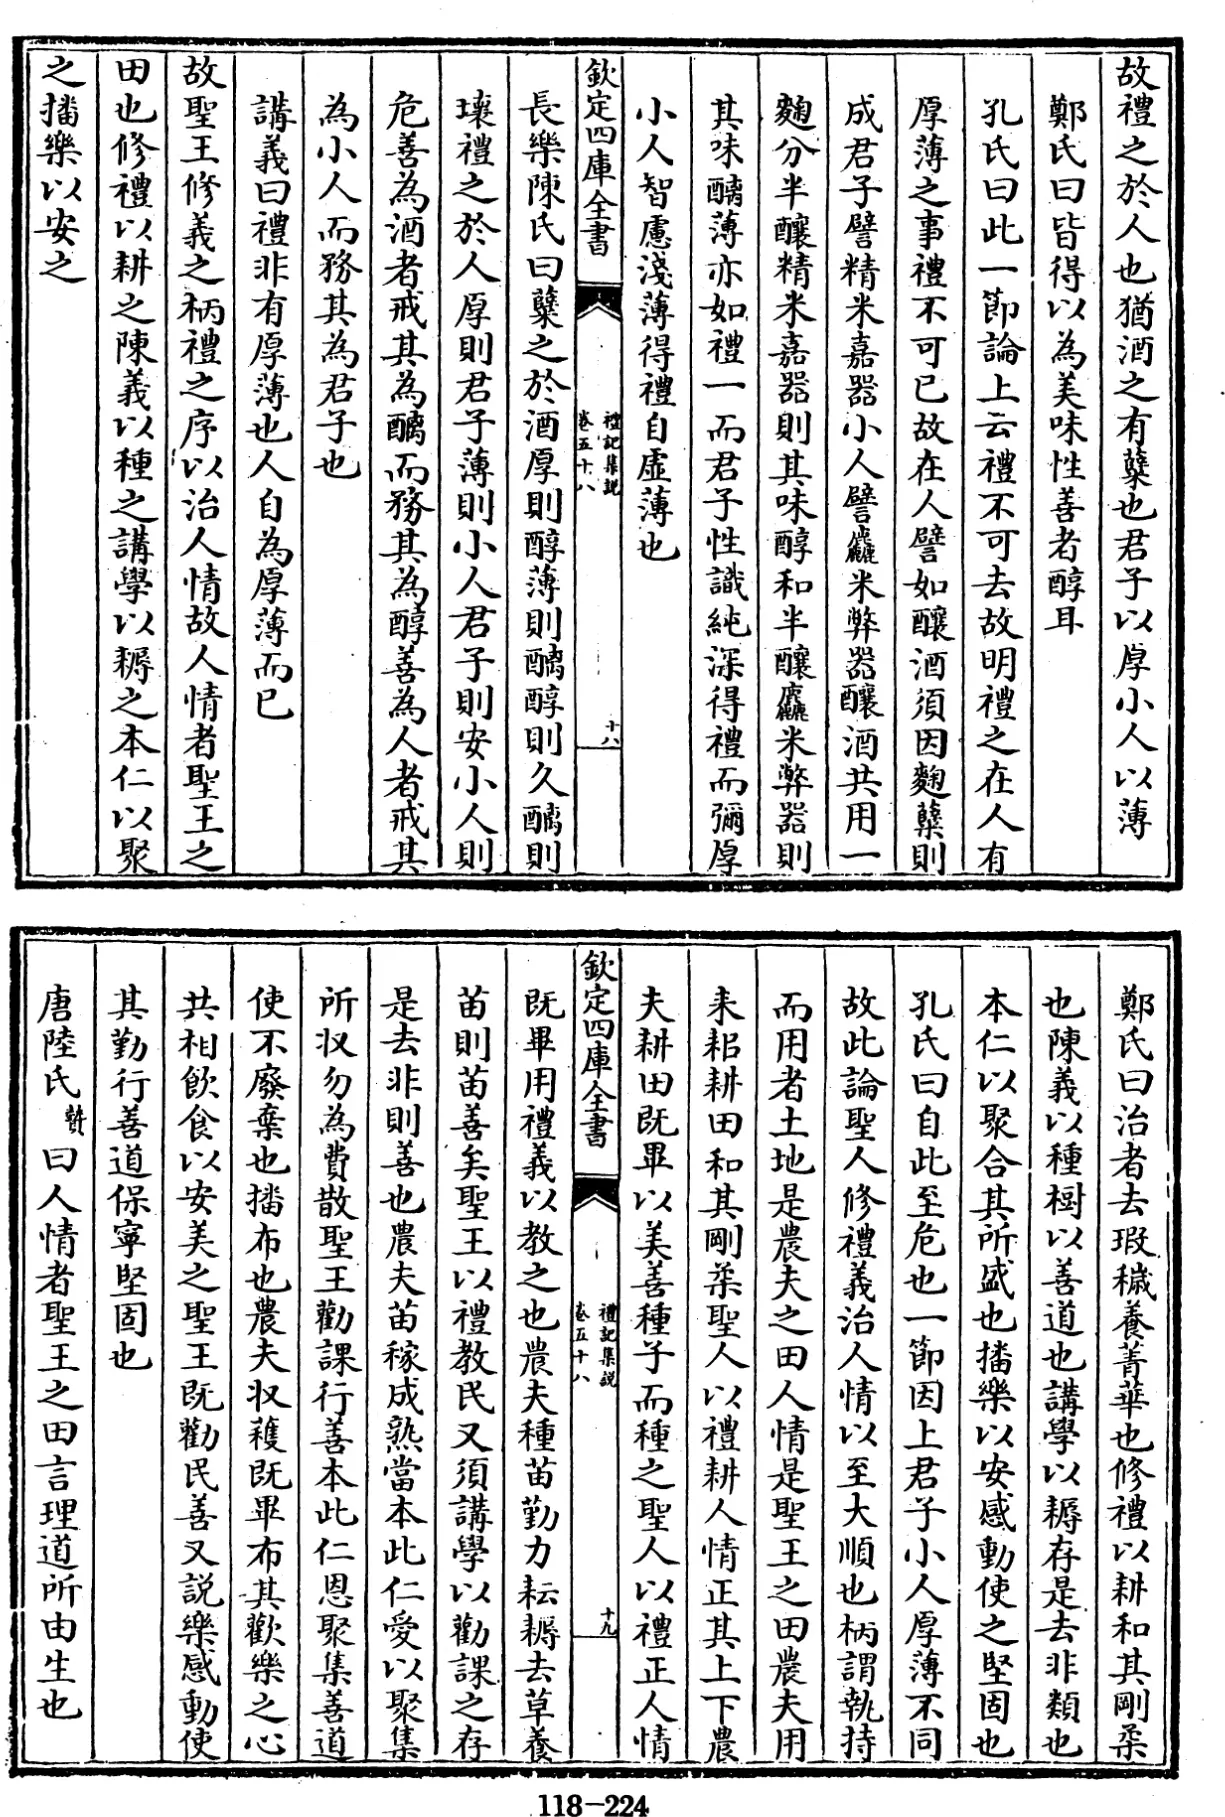 故禮之於人也猶酒之有櫱也君子以厚小人以薄
鄭氏曰皆得以為美味性善者醇耳
孔氏曰此一節論上云禮不可去故明禮之在人有
厚薄之事禮不可已故在人譬如釀酒須因麴櫱則
成君子譬精米嘉器小人譬麤米弊器釀酒共用一
麴分半釀精米嘉器則其味醇和半釀麤米弊器則
其味醨薄亦如禮一而君子性識純深得禮而彌厚
小人智慮淺薄得禮自虛薄也
欽定四庫全書
禮記集說
卷五十八
十八
長樂陳氏曰櫱之於酒厚則醇薄則醨醇則久醨則
壞禮之於人厚則君子薄則小人君子則安小人則
危善為酒者戒其為醨而務其為醇善為人者戒其
為小人而務其為君子也
講義曰禮非有厚薄也人自為厚薄而已
故聖王修義之柄禮之序以治人情故人情者聖王之
田也修禮以耕之陳義以種之講學以耨之本仁以聚
之播樂以安之
鄭氏曰治者去瑕穢養菁華也修禮以耕和其剛柔
也陳義以種樹以善道也講學以耨存是去非類也
本仁以聚合其所盛也播樂以安感動使之堅固也
孔氏曰自此至危也一節因上君子小人厚薄不同
故此論聖人修禮義治人情以至大順也柄謂執持
而用者土地是農夫之田人情是聖王之田農夫用
耒耜耕田和其剛柔聖人以禮耕人情正其上下農
夫耕田既畢以美善種子而種之聖人以禮正人情
欽定四庫全書
禮記集說
卷五十八
十九
既畢用禮義以教之也農夫種苗勤力耘耨去草養
苗則苗善矣聖王以禮教民又須講學以勸課之存
是去非則善也農夫苗稼成熟當本此仁愛以聚集
所収勿為費散聖王勸課行善本此仁恩聚集善道
使不廢棄也播布也農夫収穫既畢布其歡樂之心
共相飲食以安美之聖王既勸民善又說樂感動使
其勤行善道保寧堅固也
唐陸氏贄曰人情者聖王之田言理道所由生也
118-224